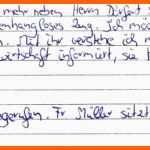 mehr neben Herrn Dörfert
enhangloses Zeug. Ich mö
. Mit ihr verstehe ich m
wirtschaft informiert, sie
gerufen. Fr Müller sitzt